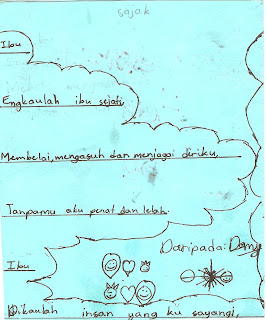 sajak
Ibu
Engkaulah ibu sejati,
Membelai, mengasuh dan menjagai diriku,
Tanpamu aku penat dan lelah.
Daripada: Dany
Ibu
Dikaulah insan yang ku sayangi,